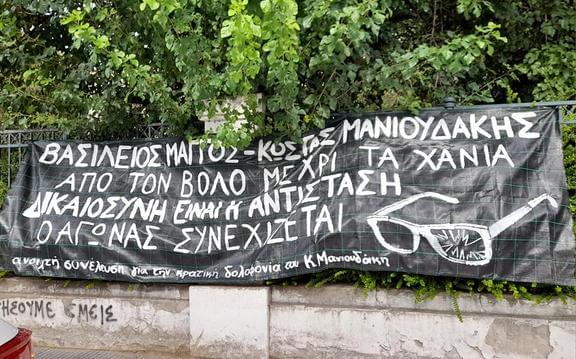 ΒΑΣΙΛΕΙΟΣ ΜΑΓΓΟΣ-ΚΩΣΤΑΣ ΜΑΝΙΟΥΔΑΚΗΣ
ΑΠΟ ΤΟΝ ΒΟΛΟ ΜΕΧΡΙ ΤΑ ΧΑΝΙΑ
ΔΙΚΑΙΟΣΥΝΗ ΕΙΝΑΙ Η ΑΝΤΙΣΤΑΣΗ
Ο ΑΓΩΝΑΣ ΣΥΝΕΧΙΖΕΤΑΙ
ανοιχτή συνέλευση για την κρατική δολοφονία του Κ.Μανιουδάκη
ΕΜΕΙΣ